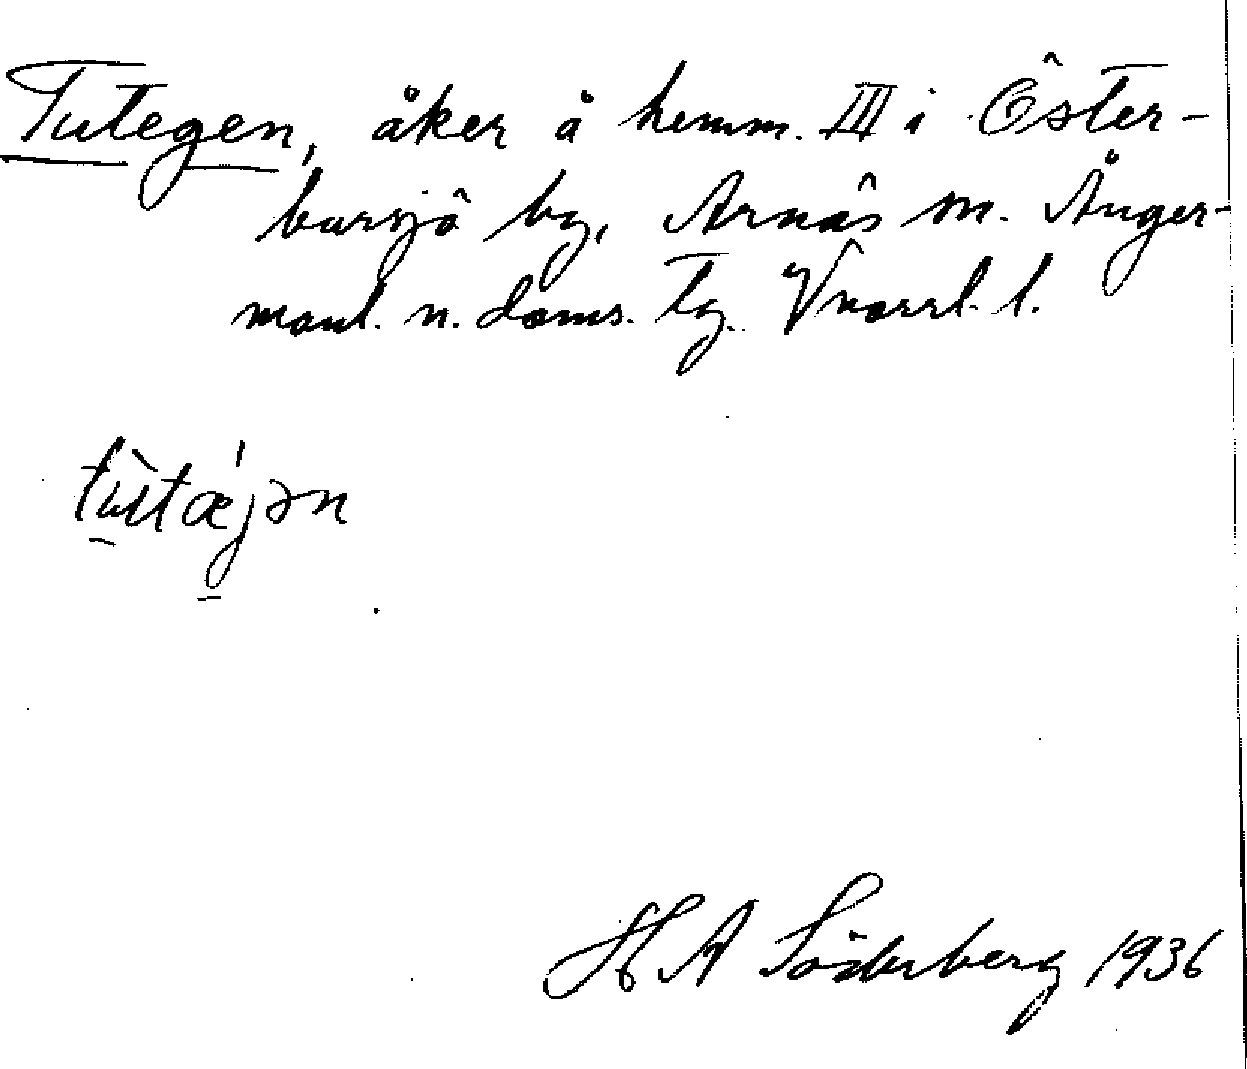 Tutegen, åker å hemm. III i Öster-
bursjö by, Arnäs sn. Ånger-
manl. n. doms. tg. Vnorrl. l.
H A Söderberg 1936